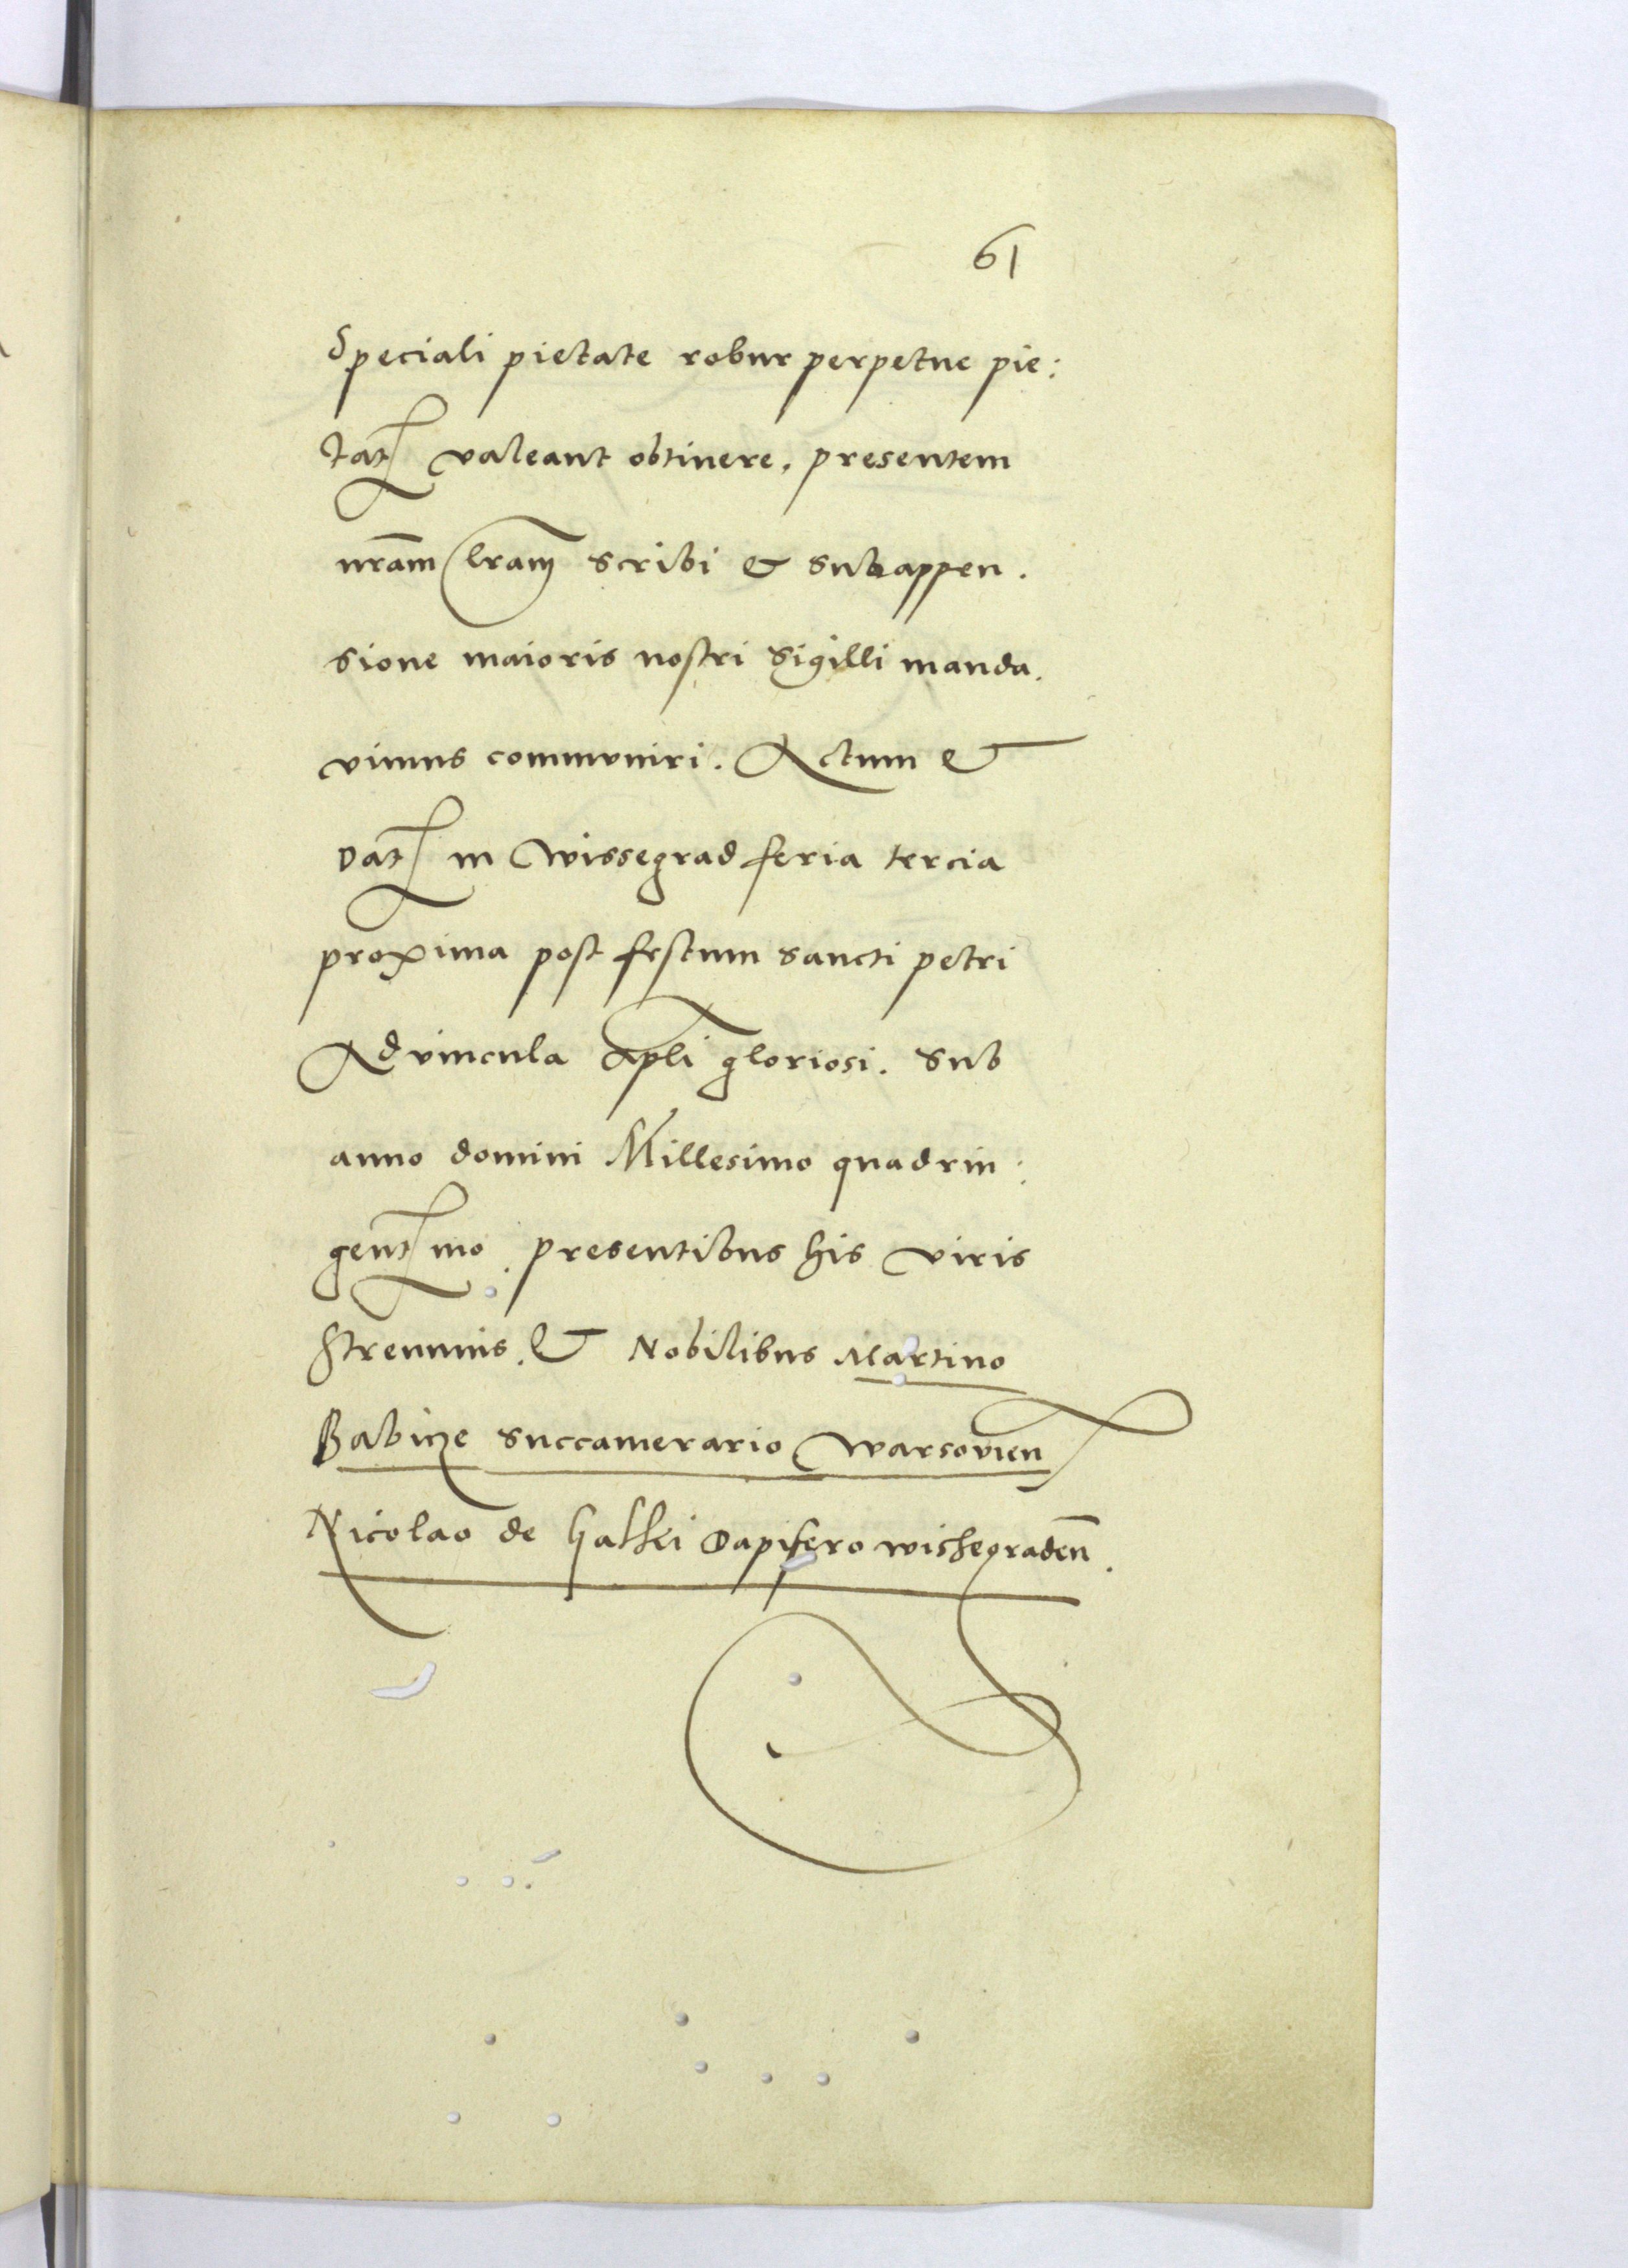 61
Speciali pietate robur perpetue pie:
tat valeant obtinere. presentem
nram lram scribi & sub appen.
sione maioris nostri Sigilli manda.
vimus communiri. Actum &
Dat in Wissegrad feria tercia
proxima post festum sancti petri
Ad vincula Apli gloriosi. Sub
anno domini Millesimo quadrin:
gent mo. presentibus his viris
Strennuis. & Nobilibus Martino
Babicze Succamerario Warsovien
Nicolao de Dapifero wishegraden.